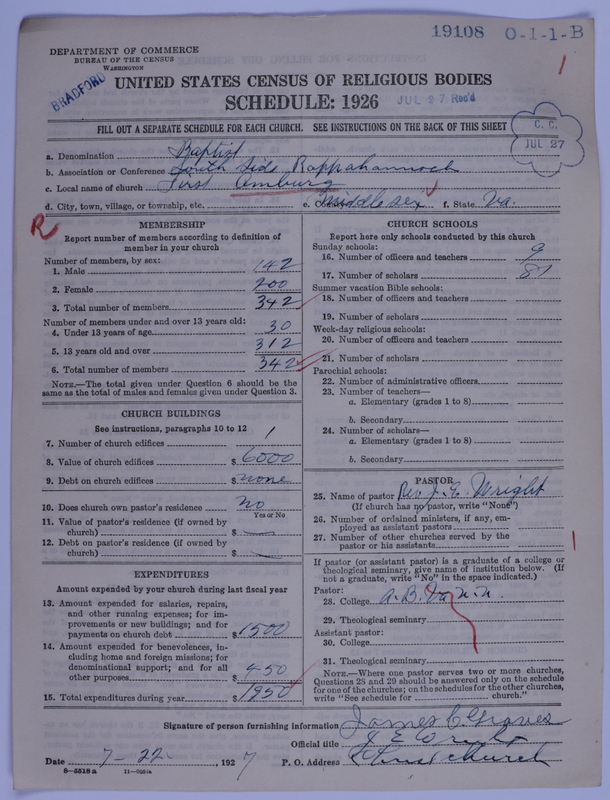 19108 O-1-1-B
1
DEPARTMENT OF COMMERCE
BUREAU OF THE CENSUS
WASHINGTON
BRADFORD
UNITED STATES CENSUS OF RELIGIOUS BODIES
SCHEDULE: 1926
JUL 27 Rec'd
C. C.
JUL 27
FILL OUT A SEPARATE SCHEDULE FOR EACH CHURCH. SEE INSTRUCTIONS ON THE BACK OF THIS SHEET
a. Denomination Baptist
b. Association or Conference South Side Rappahannock
c. Local name of church First Amburg
d. City, town, village, or township, etc. e. County Middlesex f. State Va.
R
MEMBERSHIP
Report number of members according to definition of
member in your church
Number of members, by sex:
1. Male 142
2. Female 200
3. Total number of members 342
Number of members under and over 13 years old:
4. Under 13 years of age 30
5. 13 years old and over 312
6. Total number of members 342
NOTE.—The total given under Question 6 should be the
same as the total of males and females given under Question 3.
CHURCH BUILDINGS
See instructions, paragraphs 10 to 12
7. Number of church edifices 1
8. Value of church edifices $ 6000
9. Debt on church edifices $ none
10. Does church own pastor's residence no
Yes or No
11. Value of pastor's residence (if owned by
church) $
12. Debt on pastor's residence (if owned by
church) $
EXPENDITURES
Amount expended by your church during last fiscal year
13. Amount expended for salaries, repairs,
and other running expenses; for im-
provements or new buildings; and for
payments on church debt $ 1500
14. Amount expended for benevolences, in-
cluding home and foreign missions; for
denominational support; and for all
other purposes $ 450
15. Total expenditures during year $ 1950
CHURCH SCHOOLS
Report here only schools conducted by this church
Sunday schools:
16. Number of officers and teachers 9
17. Number of scholars 81
Summer vacation Bible schools:
18. Number of officers and teachers
19. Number of scholars
Week-day religious schools:
20. Number of officers and teachers
21. Number of scholars
Parochial schools:
22. Number of administrative officers
23. Number of teachers—
a. Elementary (grades 1 to 8)
b. Secondary
24. Number of scholars—
a. Elementary (grades 1 to 8)
b. Secondary
PASTOR
25. Name of pastor Rev. J. E. Wright
(If church has no pastor, write "None")
26. Number of ordained ministers, if any, em-
ployed as assistant pastors
27. Number of other churches served by the
pastor or his assistants
If pastor (or assistant pastor) is a graduate of a college or
theological seminary, give name of institution below. (If
not a graduate, write "No" in the space indicated.)
Pastor:
28. College A. B. Va. U.
29. Theological seminary
Assistant pastor:
30. College
31. Theological seminary
NOTE.—Where one pastor serves two or more churches,
Questions 28 and 29 should be answered only on the schedule
for one of the churches; on the schedules for the other churches,
write "See schedule for church."
Signature of person furnishing information James C. Graves
Official title J. E. Wright
Date 7-22 , 1927 P. O. Address church
8-5518 a 11-9051a